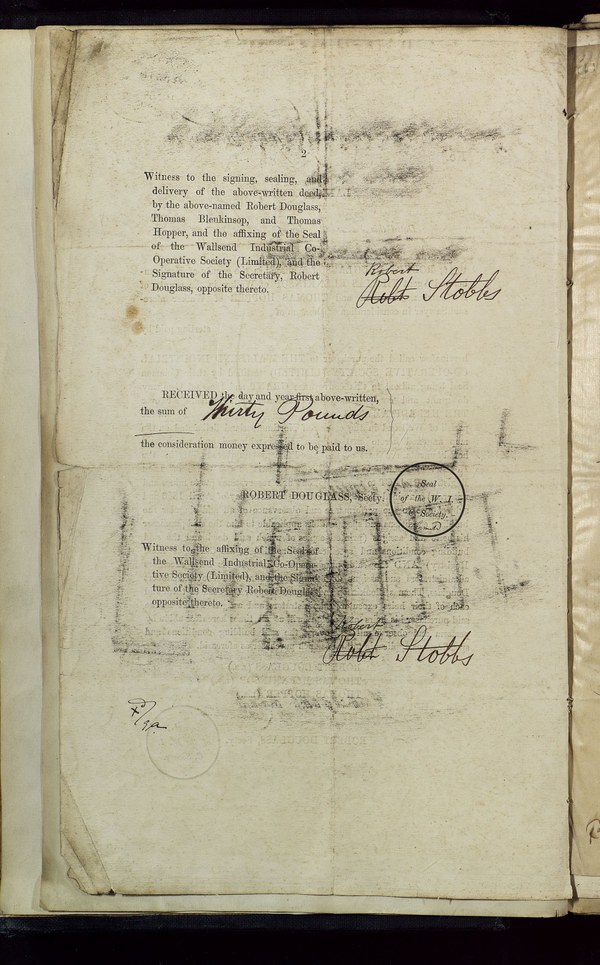 2
Witness to the signing, sealing, and
delivery of the above-written deed,
by the above-named Robert Douglass,
Thomas Blenkinsop, and Thomas
Hopper, and the affixing of the Seal
of the Wallsend Industrial Co-
Operative Society (Limited), and the
Signature of the Secretary, Robert
Douglass, opposite thereto.
Robert
Robt Stobbs
RECEIVED the day and year first above-written,
the sum of Thirty Pounds
the consideration money expressed to be paid to us.
ROBERT DOUGLASS, Secty.
Seal
of the W. I.
Society.
Witness to the affixing of the Seal of
the Wallsend Industrial Co-Opera-
tive Society (Limited), and the Signa-
ture of the Secretary Robert Douglass
opposite thereto.
Robert
Robt Stobbs